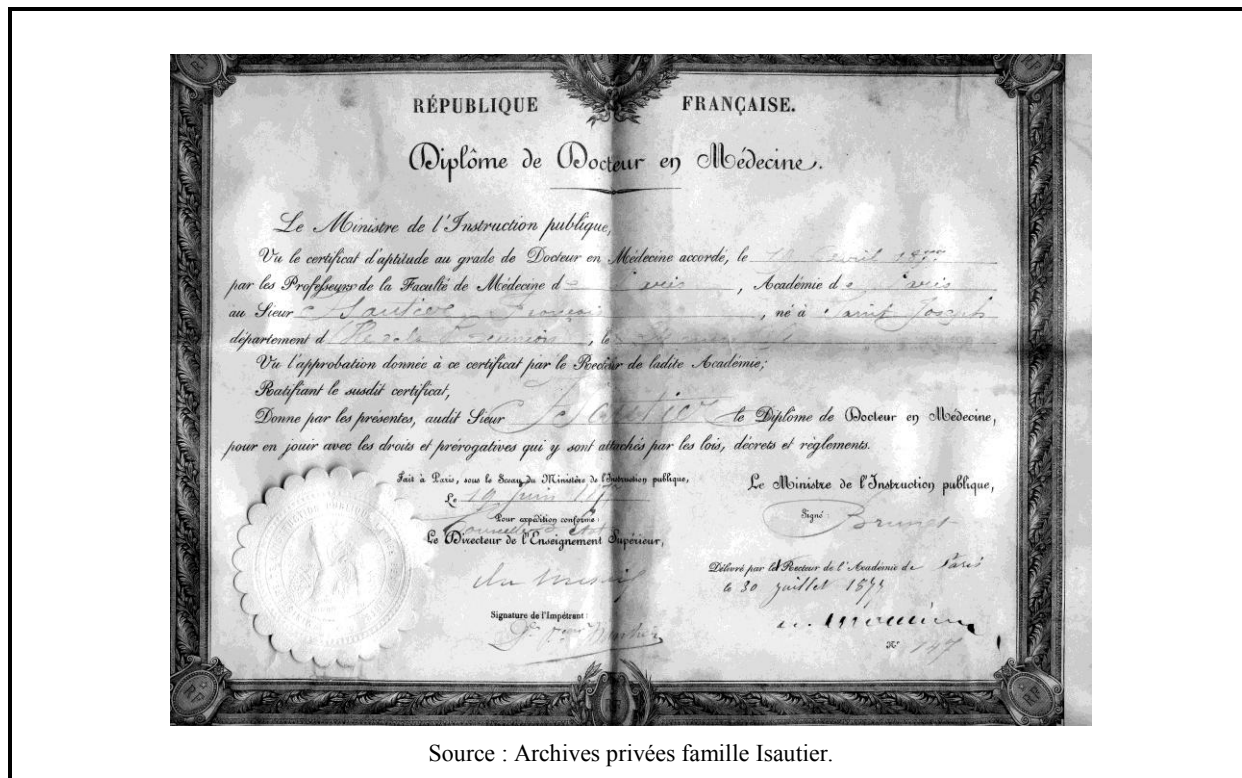 RÉPUBLIQUE FRANÇAISE.
Diplôme de Docteur en Médecine.
Le Ministre de l'Instruction publique,
Vu le certificat d'aptitude au grade de Docteur en Médecine accordé, le Avril 1877
par les Professeurs de la Faculté de Médecine de Paris, Académie de Paris
au Sieur Isautier François, né à Saint Joseph
département d Ile de la Réunion, le
Vu l'approbation donnée à ce certificat par le Recteur de ladite Académie;
Ratifiant le susdit certificat,
Donne par les présentes, audit Sieur Isautier le Diplôme de Docteur en Médecine,
pour en jouir avec les droits et prérogatives qui y sont attachés par les lois, décrets et règlements.
Fait à Paris, sous le Sceau du Ministère de l'Instruction publique,
Le 19 Juin 187
Pour expédition conforme:
Le Directeur de l'Enseignement Supérieur,
du Mesnil
Signature de l'Impétrant:
Le Ministre de l'Instruction publique,
Signé: Brunet
Délivré par le Recteur de l'Académie de Paris
le 30 juillet 187
N° 147
Source : Archives privées famille Isautier.